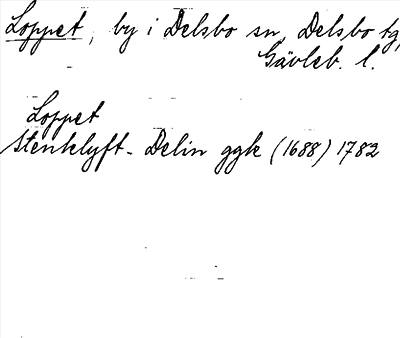 Loppet, by i Delsbo sn, Delsbo tg,
Gävleb. l.
Loppet
Stenklyft- Delin ggk (1688) 1782